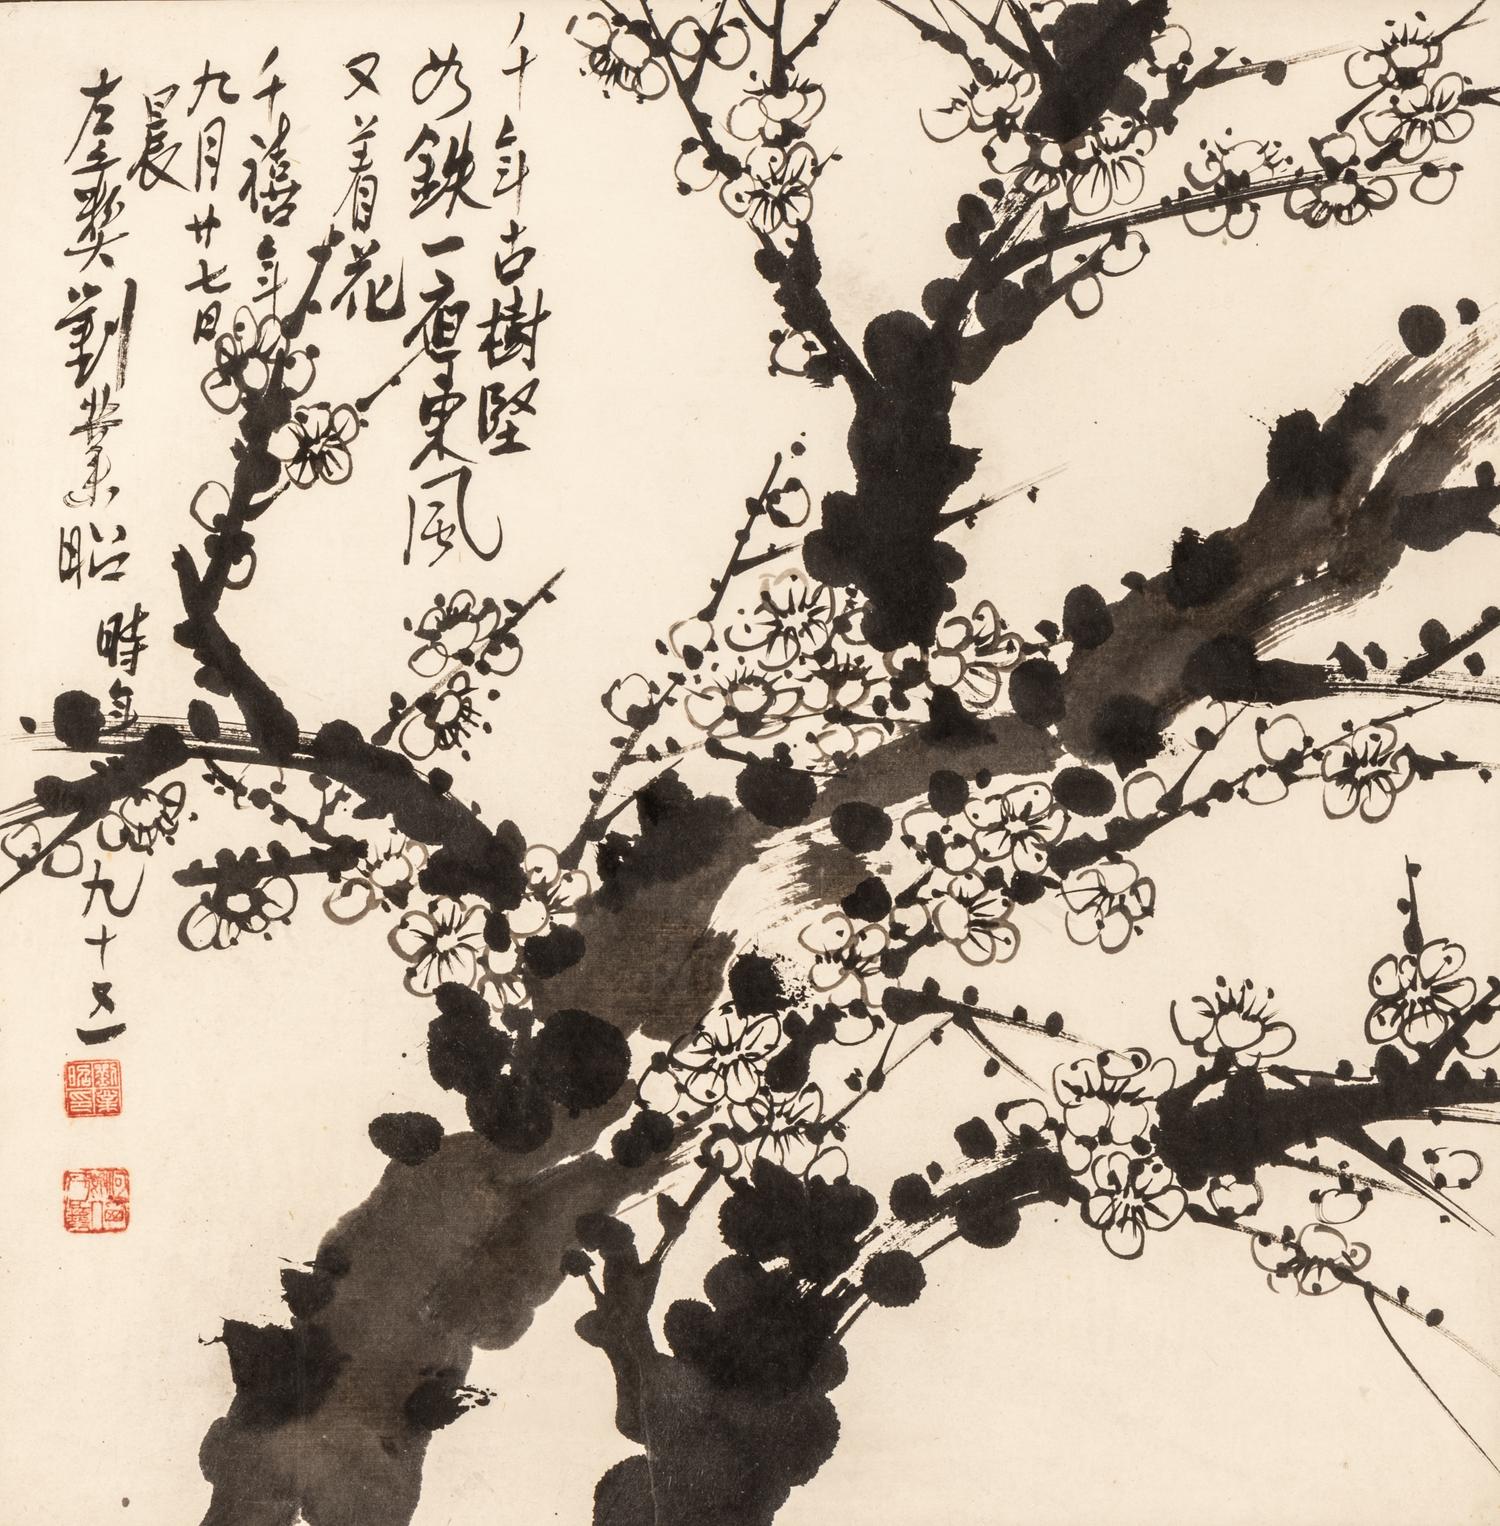 千年古樹堅
如鉄一夜東風
又着花
千禧年
九月廿七日
晨
左手獎劉業昭
時年九十又一
劉業昭印